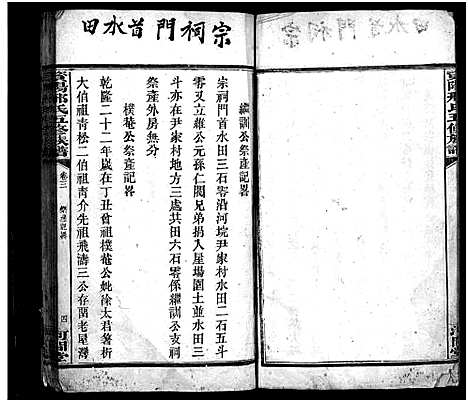 宗祠門首水田
繼訓公祭產記畧
宗祠門首水田三石零沿河垸尹家村水田二石五斗
零又立雍公元孫仁閥兄弟捐入屋場園土並水田三
斗亦在尹家村地方三處共田六石零係繼訓公支祠
祭產外房無分
樸菴公祭產記畧
乾隆二十二年歲在丁丑曾祖樸菴公妣徐太君箸析
大伯祖青松二伯祖青介先祖飛濤三公存蘭老屋灣
氏五修族譜
卷三
祭產記畧
四
河間堂